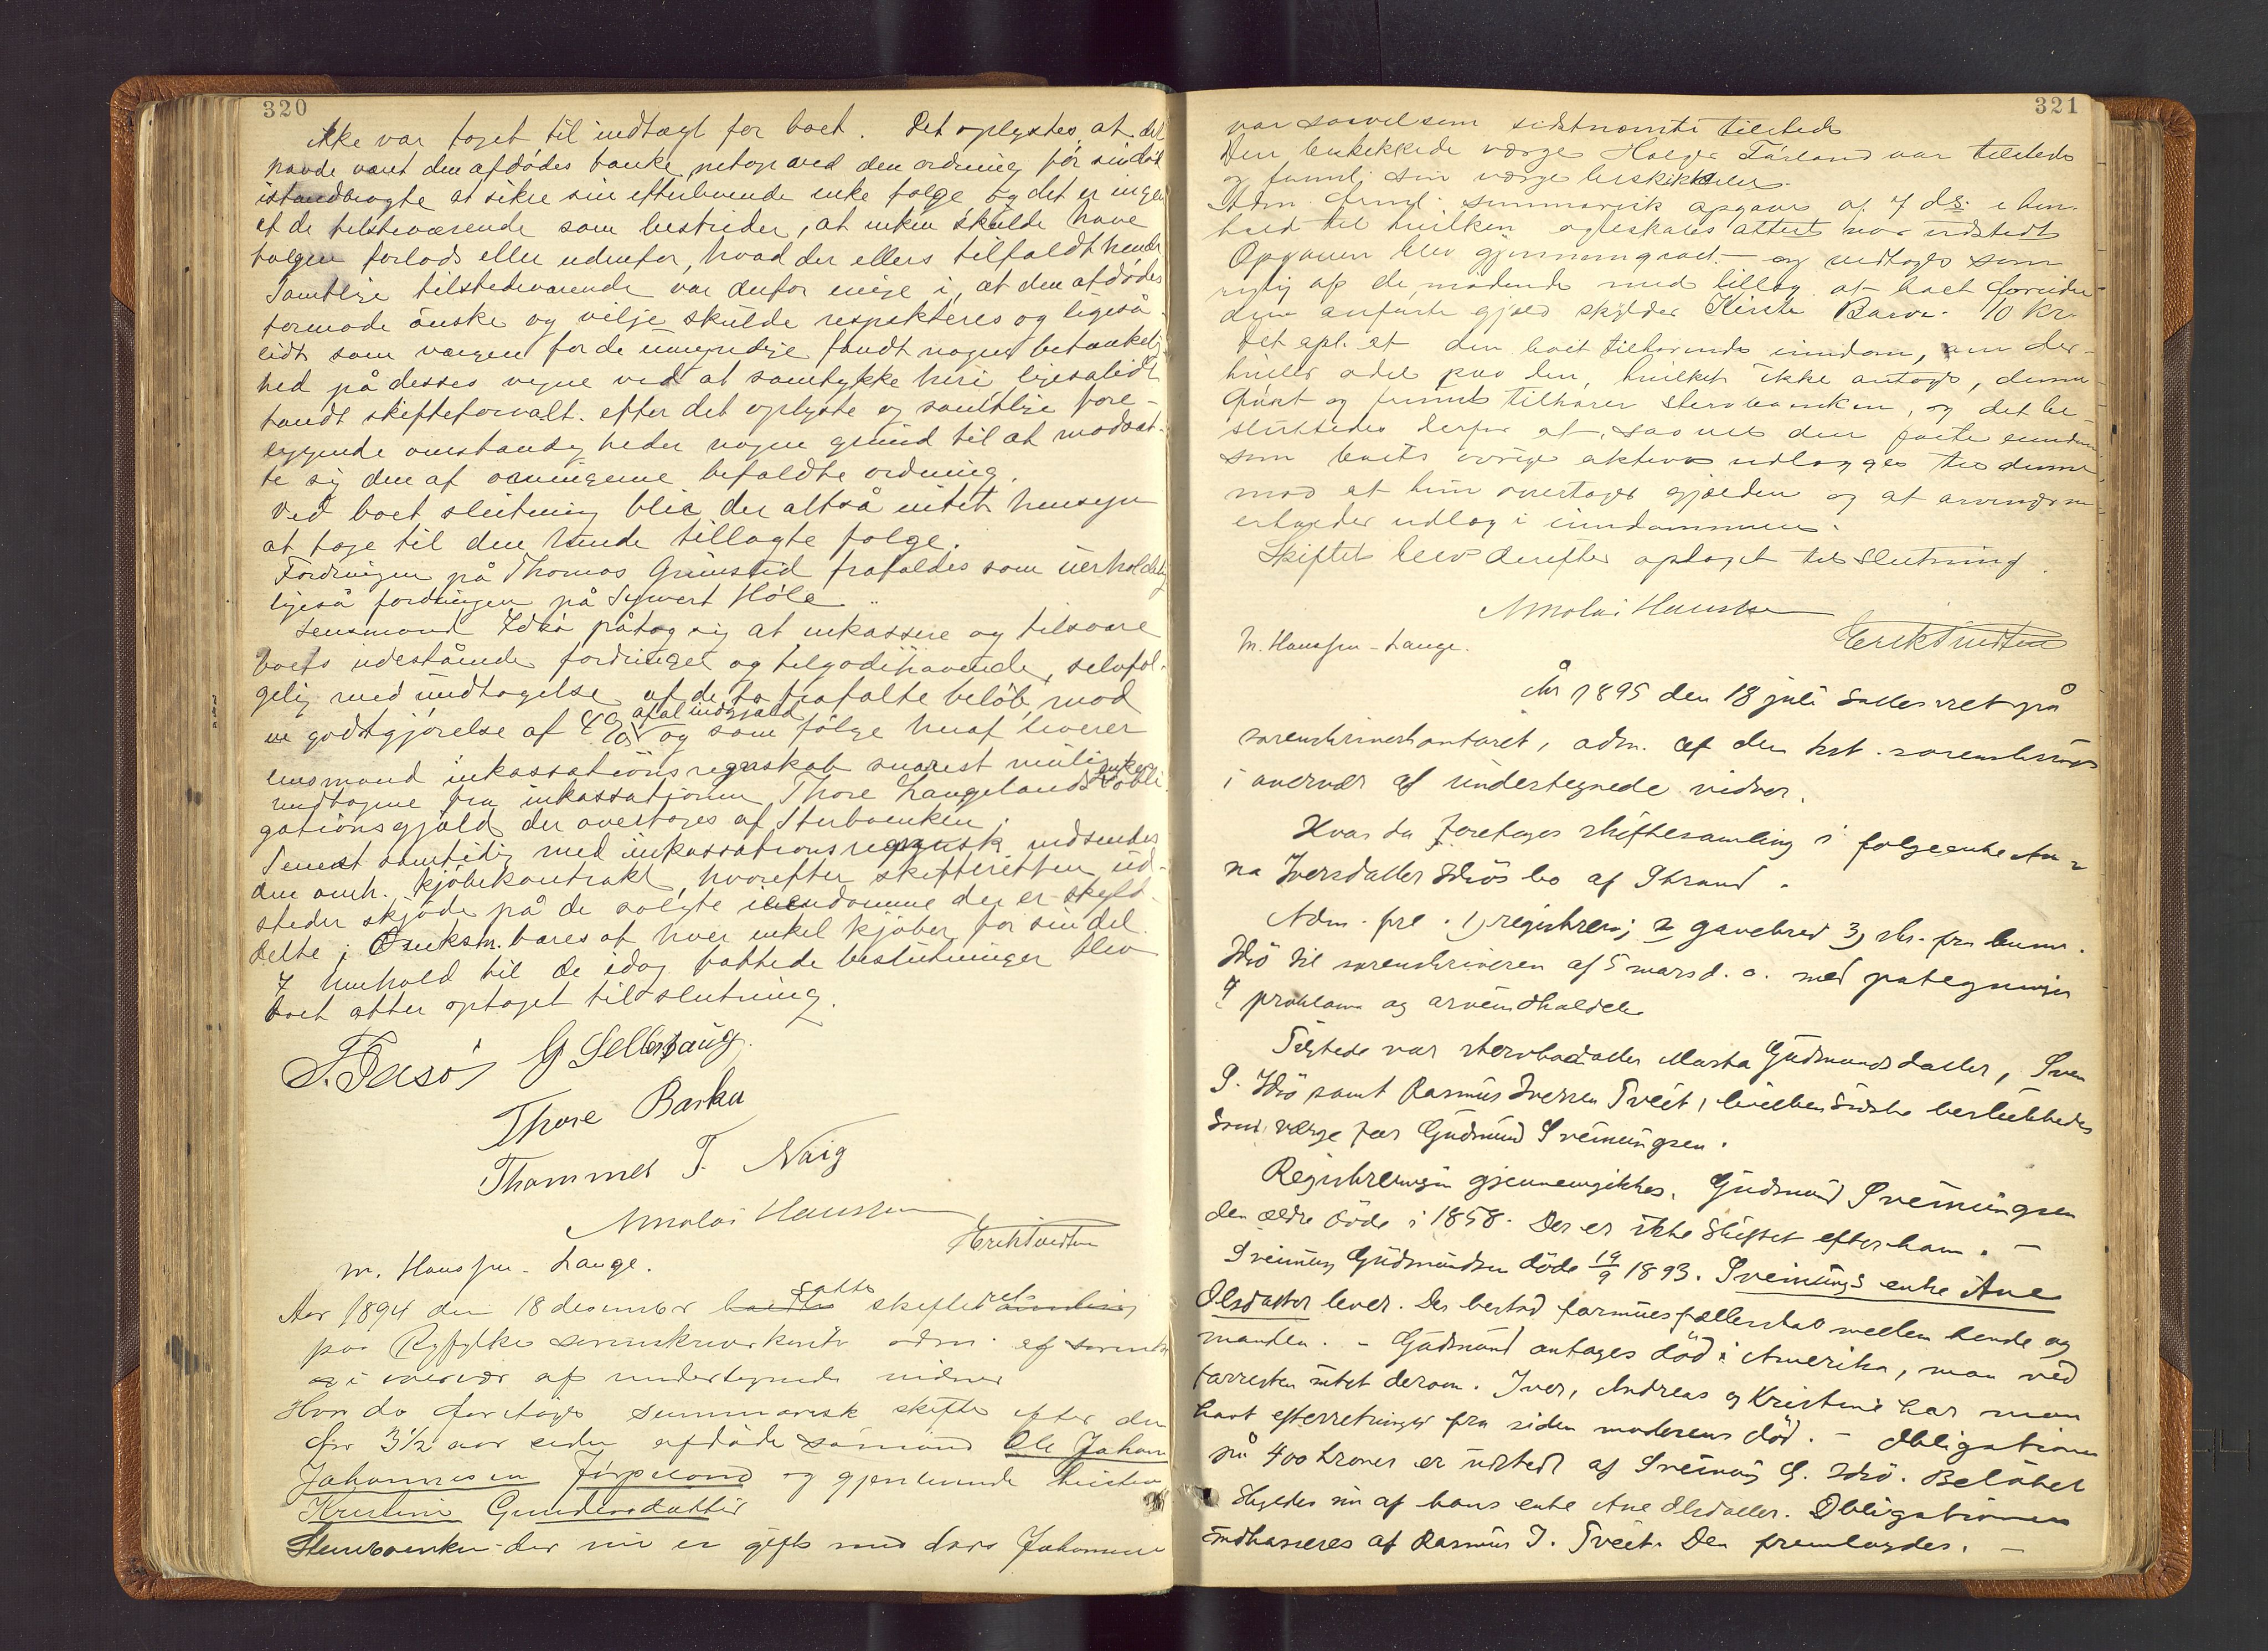 320
ikke var taget til indtægt for boet. Det oplystes, at det
havde været den afdødes tanke netop ved den ordning før sin død
istandbragte at sikre sin efterlevende enke følge, og det er ingen
af de tilstedeværende som bestrider, at enken skulde have
følgen forlods eller udenfor, hvad der ellers tilfaldt hende
Samtlige tilstedeværende var derfor enige i, at den afdødes
formode ønske og vilje skulde respekteres og ligeså
lidt som værgen for de umyndige fandt nogen betænkelig-
hed på desses vegne ved at samtykke heri ligesålidt
fandt skifteforvalt. efter det oplyste og samtlige fore-
liggende omstændigheder nogen grund til at modsæt-
te sig den af arvingerne befaldte ordning.
Ved boets slutning blir der altså intet hensyn
at tage til den hende tillagte følge.
Fordringen på Thomas Grimstid frafaldes som uerholdelig
ligeså fordringen på Syvert Høle
Lensmand Idsø påtog sig at inkassere og tilsvare
boets udestående fordringer og tilgodehavende, selvføl-
gelig med undtagelse af de to frafalte beløb, mod
en godtgjørelse af 4 % af al indgjæld og som følge heraf leverer
lensmand inkassationsregnskab snarest mulig
undtagne fra inkassationen Thore Langelands enkes obli-
gationsgjæld der overtages af Sterboenken.
Senest samtidig med inkassationsregnsk. indsendes
den omh. kjøbekontrakt, hvorefter skifteretten ud-
steder skjøde på de solgte eiendomme der er skyld-
delte; Omkostn. bæres af hver enkel kjøber for sin del.
I henhold til de idag fattede beslutninger blev
boet atter optaget til slutning.
Thore Barka
Thommes T. Naig
Nikolai Hanssen
Erik Tvedten
M. Hanssen-Lange.
Aar 1894 den 18 desember sattes skifteret
paa Ryfylke sorenskriverkontor adm. af sorenskr
og i overvær af undertegnede vidner
Hvor da foretages summarisk skifte efter den
for 3½ aar siden afdøde sømand Ole Johan
Johannesen Jørpeland og gjenlevende hustru
Kristine Gundersdatter
Sterboenken der nu er gift med Lars Johannes
321
var saavel som sidstnævnte tilstede
Den beskikkede værge Holger Førland var tilstede
og freml. sin værgebeskikkelse.
Adm. freml. summarisk opgave af 7 ds. i hen-
hold til hvilken ægteskabs attest var udstedt
Opgaven blev gjennemgaaet - og vedtoges som
rigtig af de mødende med tillæg at boet foruden
den anførte gjæld skylder Kirste Barve 10 kr.
Det opl. at den boet tilhørende eiendom, om der
hviler odel paa den, hvilket ikke antages, denne
først og fremst tilhører sterboenken, og det be-
sluttedes derfor at saavel den faste eiendom
som boets øvrige aktiva udlægges til denne
mod at hun overtager gjælden og at arvingerne
erholder udlæg i eiendommen.
Skiftet blev derefter optaget til slutning.
Nikolai Hanssen
M. Hanssen-Lange.
Erik Tvedten
År 1895 den 18 juli sattes ret på
sorenskriverkontoret, adm. af den kst. sorenskriver
i overvær af undertegnede vidner.
Hvor da foretages skiftesamling i følgeenke An-
na Iversdatter Idsøs bo af Strand.
Adm. fre. 1) registrering 2) gavebrev 3) skr. fra lensm.
Idsø til sorenskriveren af 5 mars d. a. med påtegninger
4 proklama og arveindkaldelse
Tilstede var sterbodatter Marta Gudmundsdatter, Sven
S. Idsø samt Rasmus Iversen Tveit, hvilken sidste beskikkedes
som værge for Gudmund Sveinungsen.
Registreringen gjennemgikkes. Gudmund Sveinungsen
den ældre døde i 1858. Der er ikke skiftet efter ham. -
Sveinung Gudmundsen døde 19/9 1893. Sveinungs enke Ane
Olsdatter lever. Der bestod formuesfællesskab mellem hende og
manden. - Gudmund antages død i Amerika, man ved
forresten intet derom. Iver, Andreas og Kristine har man
havt efterretninger fra siden moderens død. - Obligationen
på 400 kroner er udstedt af Sveinung G. Idsø. Beløbet
skyldes nu af hans enke Ane Olsdatter. Obligationen
indkasseres af Rasmus I. Tveit. Den fremlagdes. -